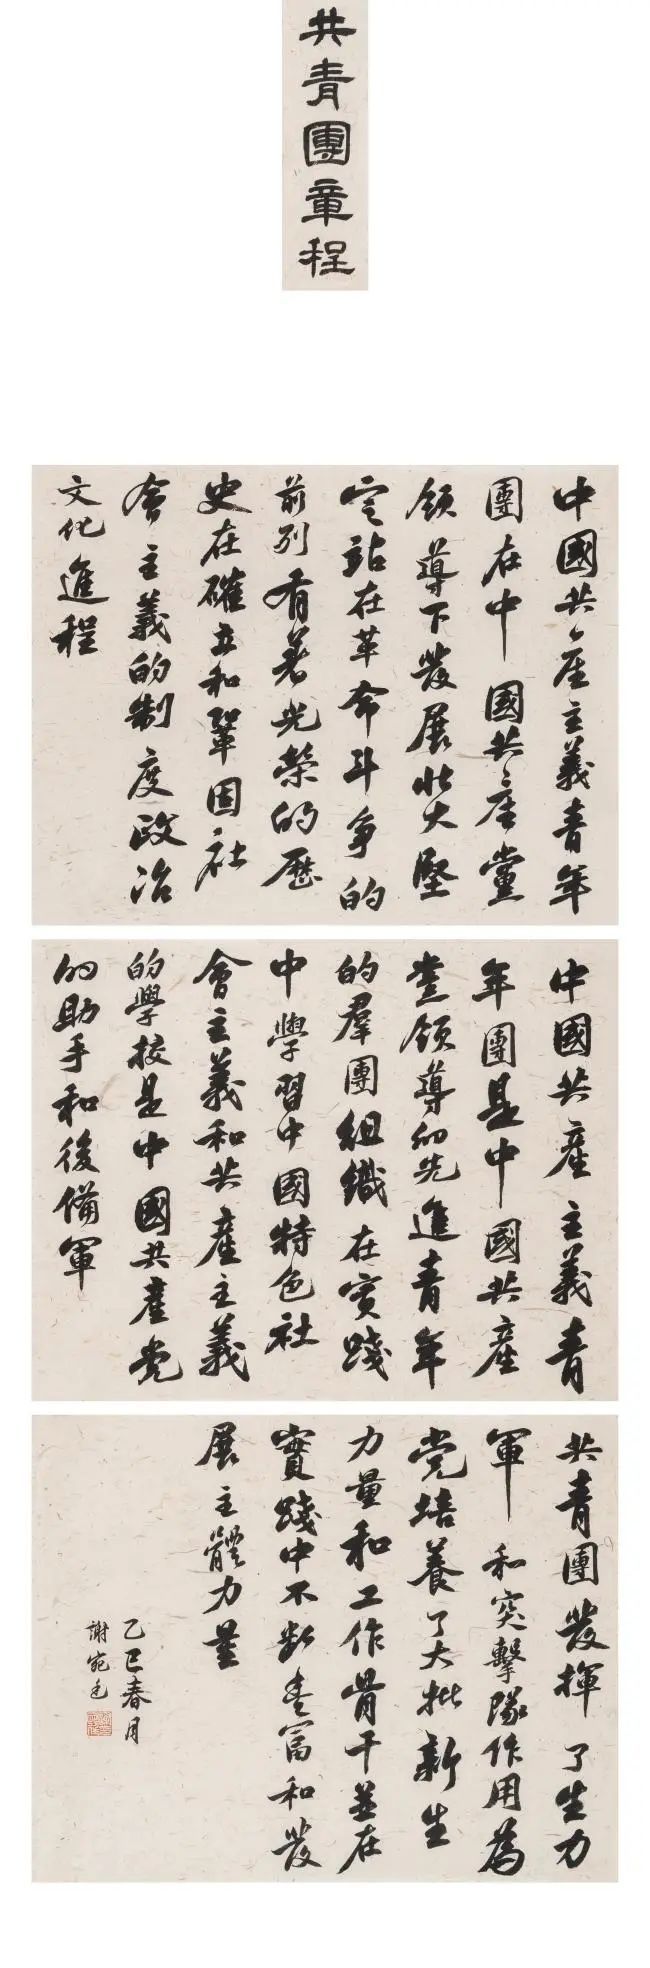 共青團章程
中國共產主義青年
團在中國共產黨
領導下發展壯大堅
定站在革命斗爭的
前列有著光榮的歷
史在確立和鞏固社
會主義的制度政治
文化進程
中國共產主義青
年團是中國共產
党領導的先進青年
的羣團組織在實踐
中學習中國特色社
會主義和共產主義
的學校是中國共產党
的助手和後備軍
共青團發揮了生力
軍和突擊隊作用為
党培養了大批新生
力量和工作骨干並在
實踐中不斷豐富和發
展主體力量
乙巳春月
謝宛廷